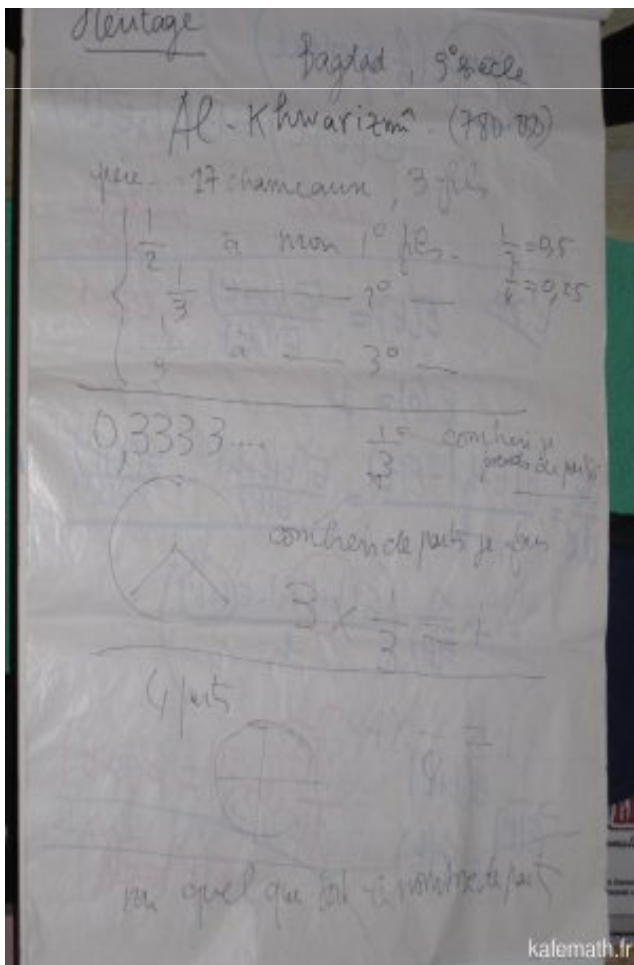 Héritage
Bagdad, 9° siècle
Al-Khwarizmî (780-850)
père ... 17 chameaux, 3 fils
1/2 à mon 1° fils. 1/2 = 0,5
1/3 — 2° — 1/4 = 0,25
1/9 à — 3° —
0,3333.... 1/3 combien je
prends de parts
combien de parts je fais
3 × 1/3 = 1
4 parts
4 × 1/4 =
quel que soit nombre de parts
kalemath.fr